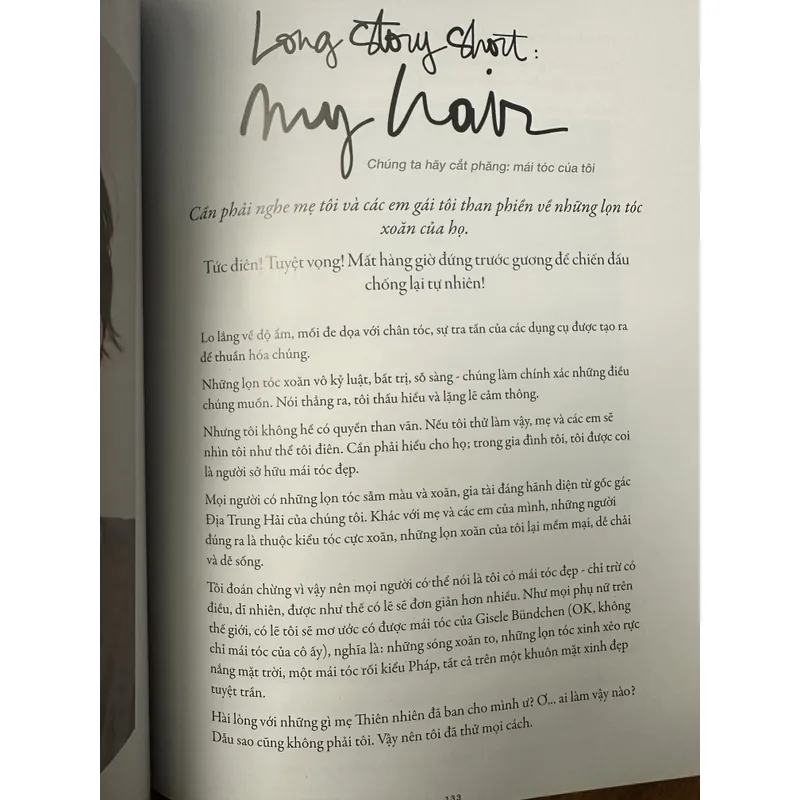 Long Story Short:
My hair
Chúng ta hãy cắt phăng: mái tóc của tôi
Cần phải nghe mẹ tôi và các em gái tôi than phiền về những lọn tóc
xoăn của họ.
Tức điên! Tuyệt vọng! Mất hàng giờ đứng trước gương để chiến đấu
chống lại tự nhiên!
Lo lắng về độ ẩm, mối đe dọa với chân tóc, sự tra tấn của các dụng cụ được tạo ra
để thuần hóa chúng.
Những lọn tóc xoăn vô kỷ luật, bất trị, sỗ sàng - chúng làm chính xác những điều
chúng muốn. Nói thẳng ra, tôi thấu hiểu và lặng lẽ cảm thông.
Nhưng tôi không hề có quyền than vãn. Nếu tôi thử làm vậy, mẹ và các em sẽ
nhìn tôi như thể tôi điên. Cần phải hiểu cho họ; trong gia đình tôi, tôi được coi
là người sở hữu mái tóc đẹp.
Mọi người có những lọn tóc sẫm màu và xoăn, gia tài đáng hãnh diện từ gốc gác
Địa Trung Hải của chúng tôi. Khác với mẹ và các em của mình, những người
đúng ra là thuộc kiểu tóc cực xoăn, những lọn xoăn của tôi lại mềm mại, dễ chải
và dễ sống.
Tôi đoán chừng vì vậy nên mọi người có thể nói là tôi có mái tóc đẹp - chỉ trừ có
điều, dĩ nhiên, được như thế có lẽ sẽ đơn giản hơn nhiều. Như mọi phụ nữ trên
thế giới, có lẽ tôi sẽ mơ ước có được mái tóc của Gisele Bündchen (OK, không
chỉ mái tóc của cô ấy), nghĩa là: những sóng xoăn to, những lọn tóc xinh xẻo rực
nắng mặt trời, một mái tóc rối kiểu Pháp, tất cả trên một khuôn mặt xinh đẹp
tuyệt trần.
Hài lòng với những gì mẹ Thiên nhiên đã ban cho mình ư? Ơ... ai làm vậy nào?
Dẫu sao cũng không phải tôi. Vậy nên tôi đã thử mọi cách.
133